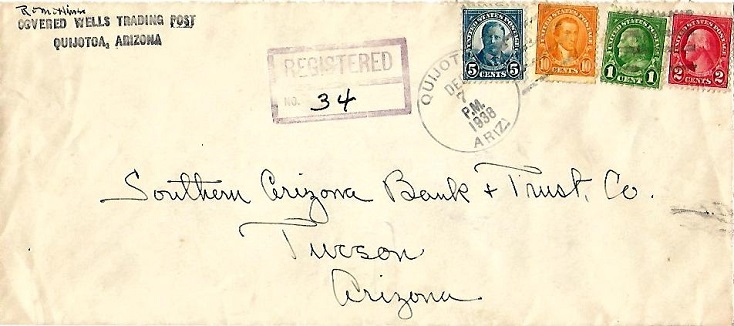 COVERED WELLS TRADING POST
QUIJOTOA, ARIZONA
REGISTERED
NO. 34
UNITED STATES POSTAGE
5 CENTS 5
UNITED STATES POSTAGE
10 CENTS 10
UNITED STATES POSTAGE
1 CENT 1
UNITED STATES POSTAGE
2 CENTS 2
QUIJOTOA
DEC
7
P.M.
1938
ARIZ.
Southern Arizona Bank + Trust, Co.
Tucson
Arizona